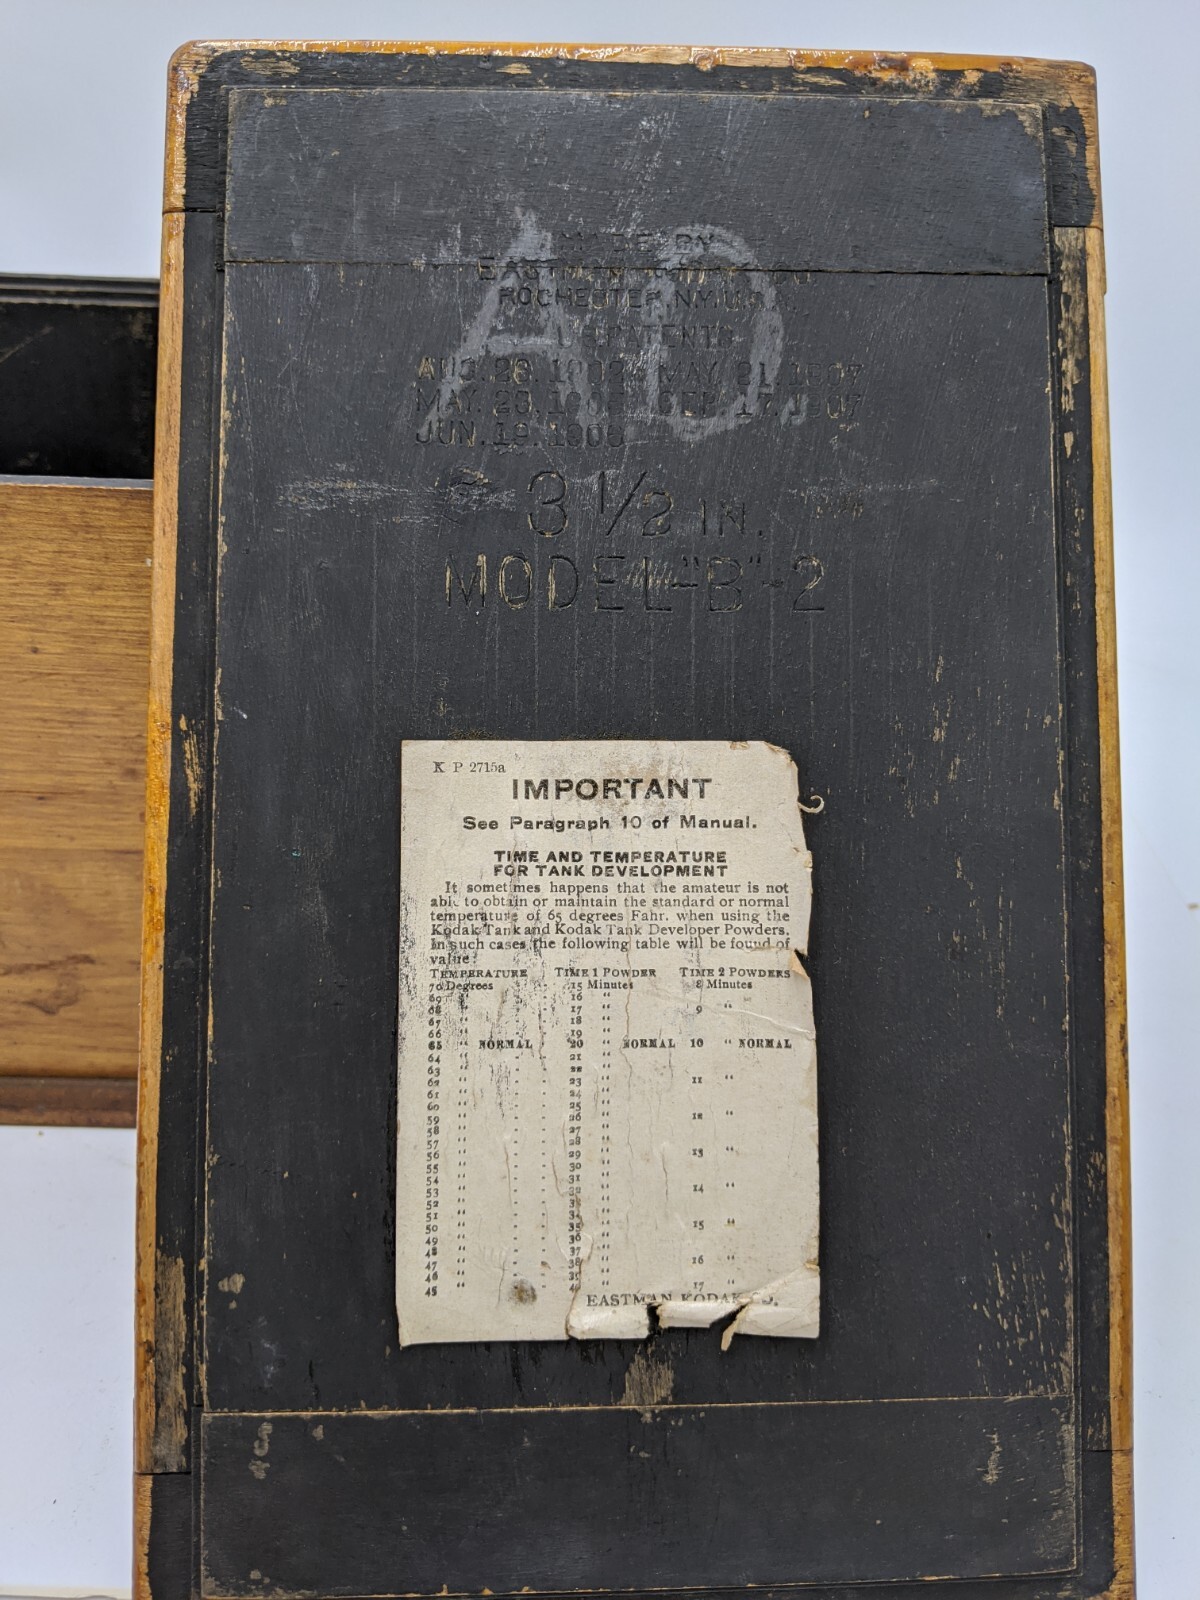 AD
MADE BY
EASTMAN CO.
ROCHESTER, N.Y. U.S.
U.S. PATENTS
AUG. 26, 1902 MAY. 21, 1907
MAY. 20, SEP. 17, 1907
JUN. 19, 1906
3 1/2 IN.
MODEL-"B"-2
K P 2715a
IMPORTANT
See Paragraph 10 of Manual.
TIME AND TEMPERATURE
FOR TANK DEVELOPMENT
It sometimes happens that the amateur is not
able to obtain or maintain the standard or normal
temperature of 65 degrees Fahr. when using the
Kodak Tank and Kodak Tank Developer Powders.
In such cases the following table will be found of
value:
TEMPERATURE TIME 1 POWDER TIME 2 POWDERS
70 Degrees - 15 Minutes 8 Minutes
69 " - - 16 "
68 " - - 17 " 9 "
67 " - - 18 "
66 " - - 19 "
65 " NORMAL - 20 " NORMAL 10 " NORMAL
64 " - - 21 "
63 " - - 22 "
62 " - - 23 " 11 "
61 " - - 24 "
60 " - - 25 "
59 " - - 26 " 12 "
58 " - - 27 "
57 " - - 28 "
56 " - - 29 " 13 "
55 " - - 30 "
54 " - - 31 "
53 " - - 32 " 14 "
52 " - - 33 "
51 " - - 34 "
50 " - - 35 " 15 "
49 " - - 36 "
48 " - - 37 "
47 " - - 38 " 16 "
46 " - - 39 "
45 " - - 17 "
EASTMAN KODAK CO.